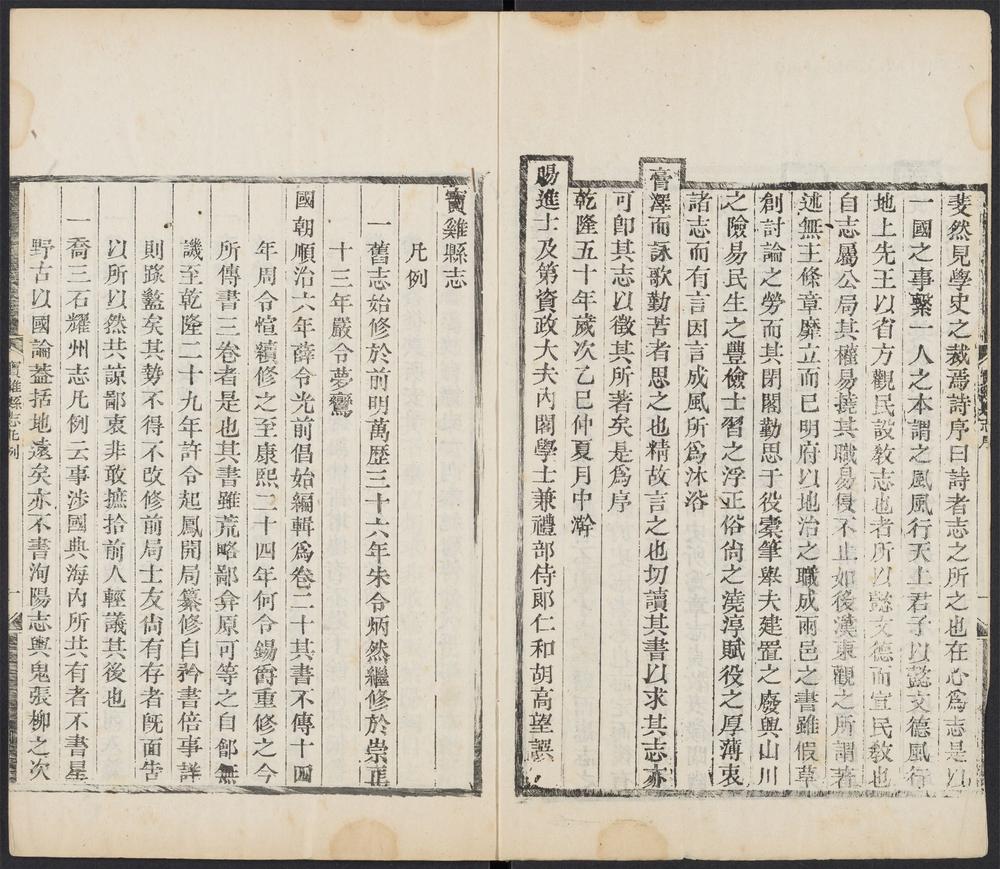 斐然見學史之裁焉詩序曰詩者志之所之也在心爲志是以
一國之事繫一人之本謂之風風行天上君子以懿文德風行
地上先王以省方觀民設敎志也者所以懿文德而宣民敎也
自志屬公局其權易撓其職易侵不止如後漢東觀之所謂著
述無主條章靡立而已明府以地治之職成兩邑之書雖假草
創討論之勞而其閉閣勤思于役橐筆舉夫建置之廢興山川
之險易民生之豐儉士習之浮正俗尙之澆淳賦役之厚薄衷
諸志而有言因言成風所爲沐浴
膏澤而詠歌勤苦者思之也精故言之也切讀其書以求其志亦
可卽其志以徵其所著矣是爲序
乾隆五十年歲次乙巳仲夏月中澣
賜進士及第資政大夫內閣學士兼禮部侍郎仁和胡高望譔
寶雞縣志
凡例
一舊志始修於前明萬歷三十六年朱令炳然繼修於崇禎
十三年嚴令夢鸞
國朝順治六年薛令光前倡始編輯爲卷二十其書不傳十四
年周令愃續修之至康熙二十四年何令錫爵重修之今
所傳書三卷者是也其書雖荒略鄙弇原可等之自鄶無
譏至乾隆二十九年許令起鳳開局纂修自矜書倍事詳
則踳盭矣其勢不得不改修前局士友尙有存者旣面吿
以所以然共諒鄙衷非敢摭拾前人輕議其後也
一喬三石耀州志凡例云事涉國典海內所共有者不書星
野古以國論葢括地遠矣亦不書洵陽志輿鬼張柳之次
寶雞縣志凡例
一